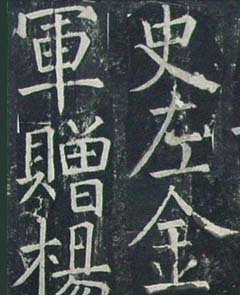 史左金
軍贈楊